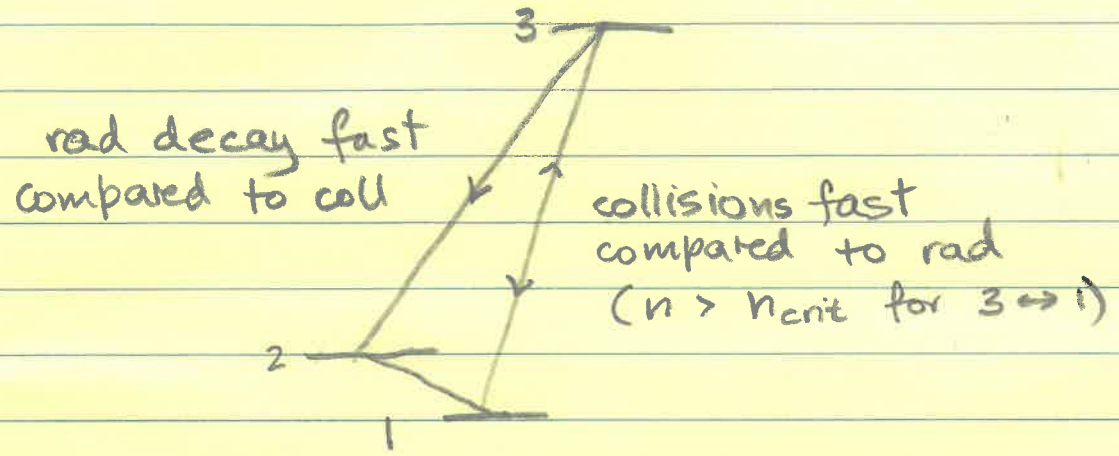 3
rad decay fast
compared to coll
collisions fast
compared to rad
(n > n_crit for 3 ↔ 1)
2
1